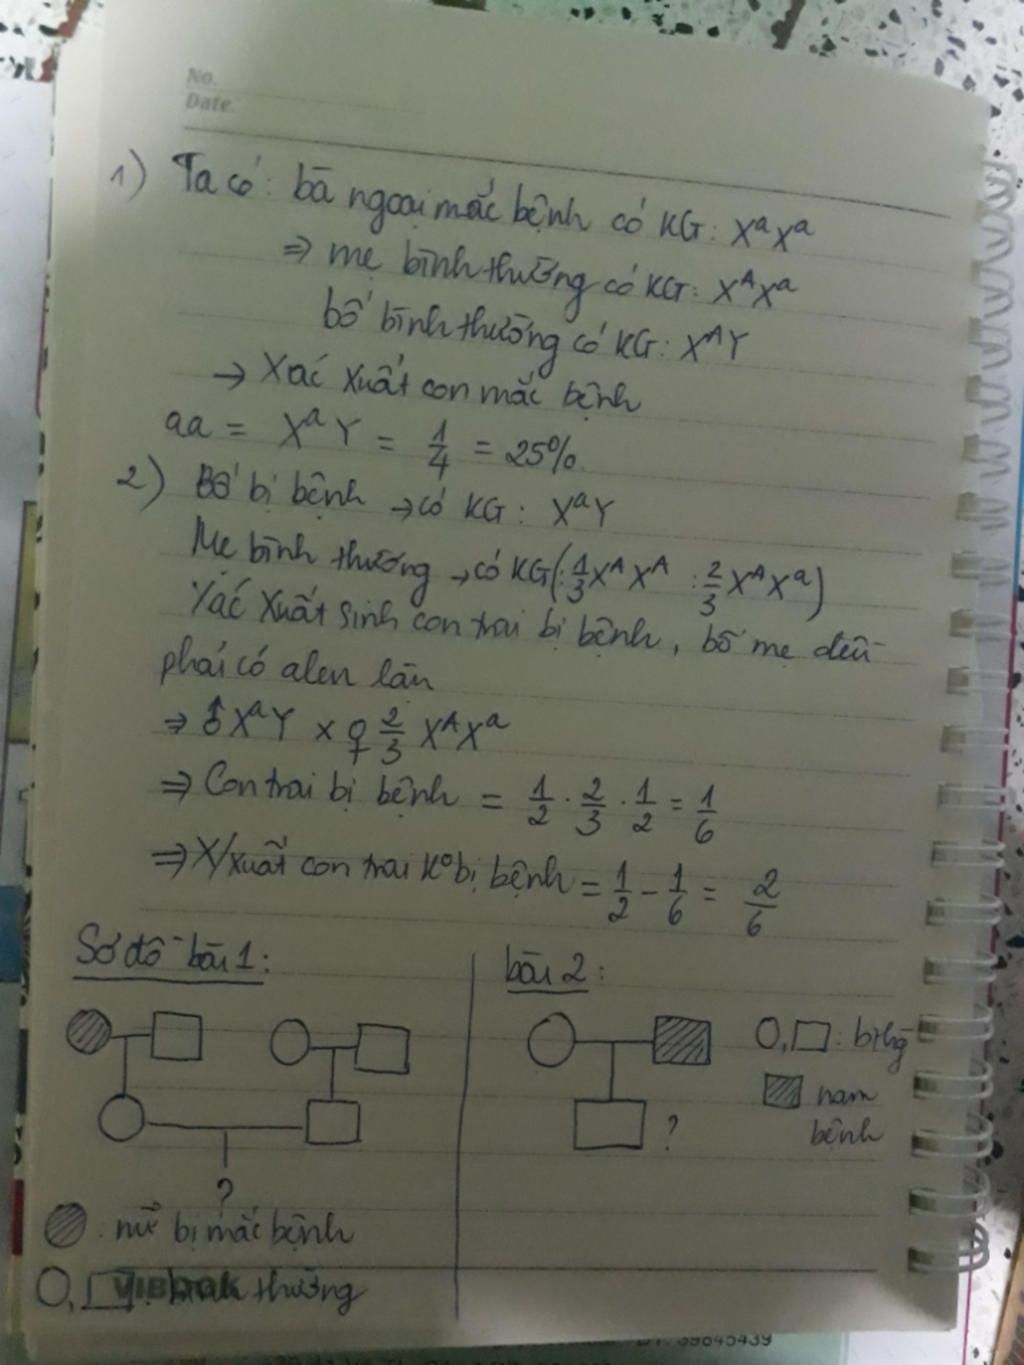 No.
Date.
1) Ta có: bà ngoại mắc bệnh có KG: XᵃXᵃ
⇒ mẹ bình thường có KG: XᴬXᵃ
bố bình thường có KG: XᴬY
→ Xác xuất con mắc bệnh
aa = XᵃY = 1/4 = 25%.
2) Bố bị bệnh → có KG: XᵃY
Mẹ bình thường → có KG (: 1/3 XᴬXᴬ : 2/3 XᴬXᵃ)
Xác xuất sinh con trai bị bệnh, bố mẹ đều
phải có alen lặn
⇒ ♂ XᵃY x ♀ 2/3 XᴬXᵃ
⇒ Con trai bị bệnh = 1/2 . 2/3 . 1/2 = 1/6
⇒ X/xuất con trai k° bị bệnh = 1/2 - 1/6 = 2/6
Sơ đồ bài 1:
?
: nữ bị mắc bệnh
O, □ : bình thường
VIBOOK
bài 2:
?
O, □ : bthg
nam
bệnh
39845439